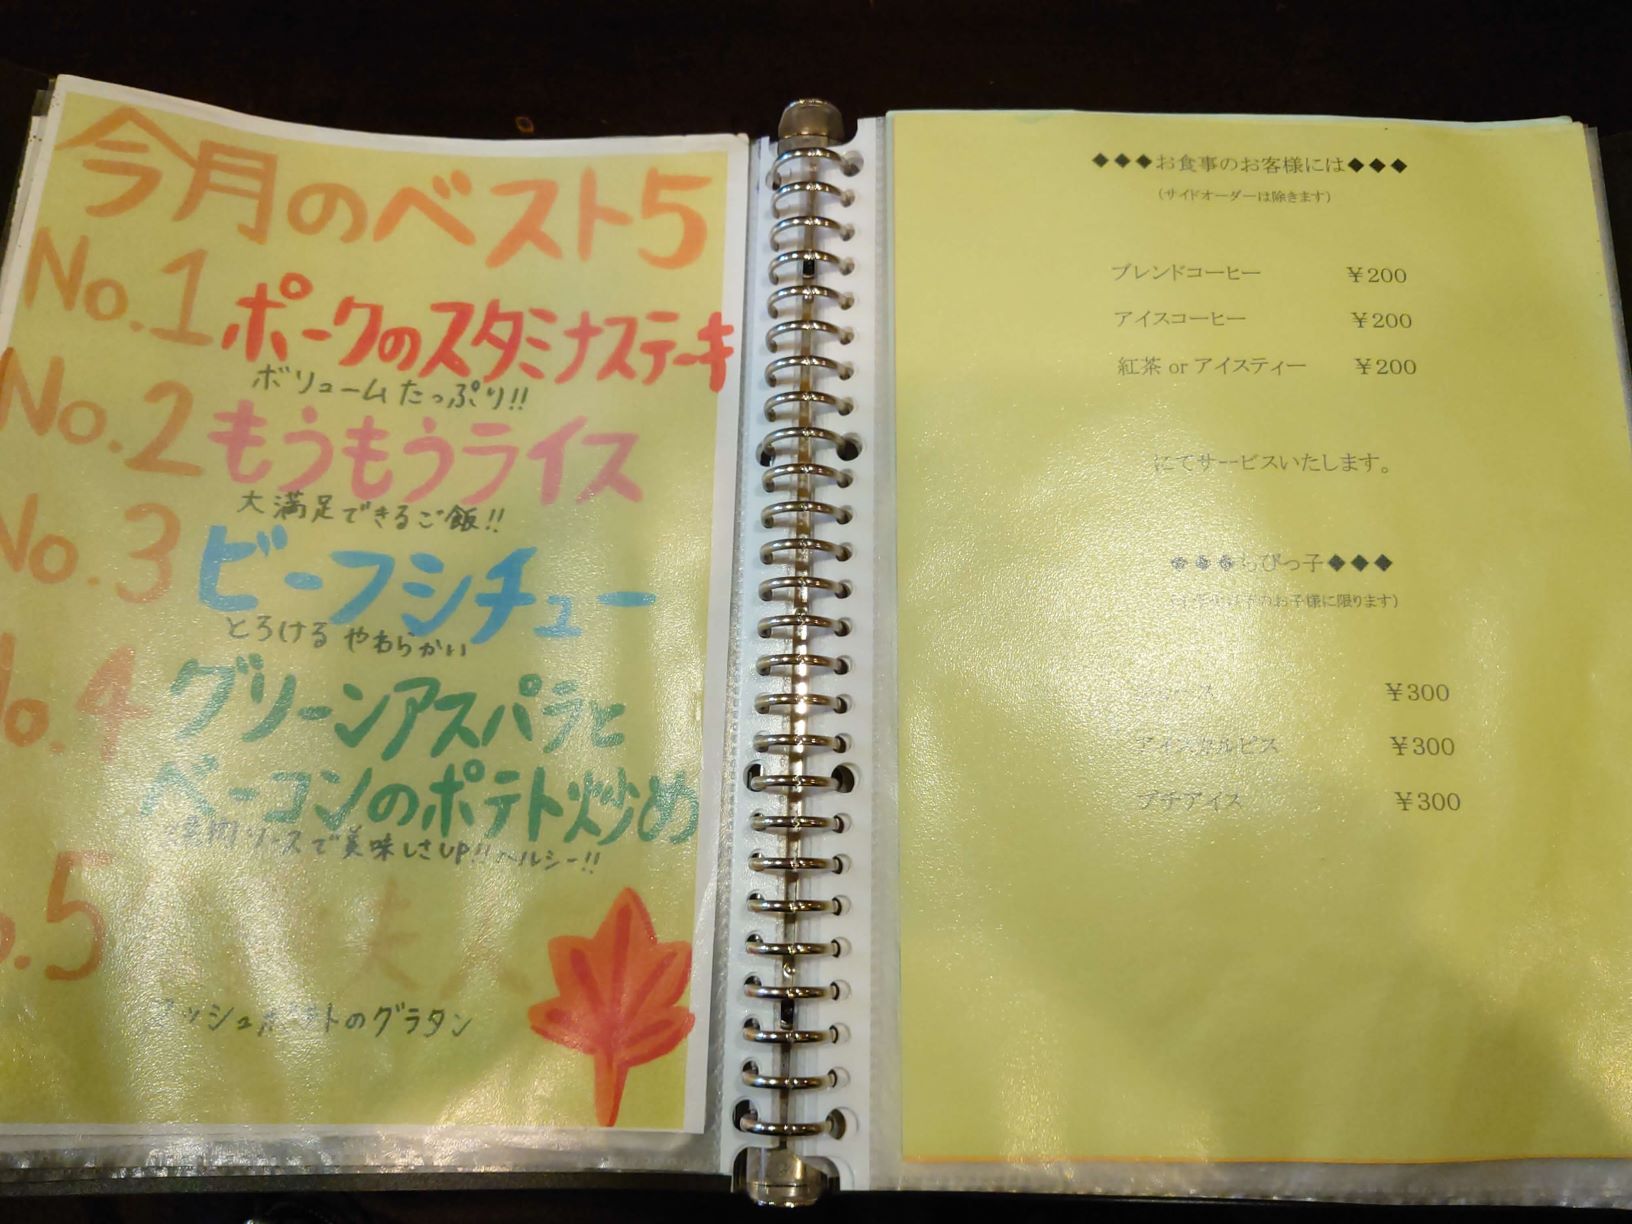 今月のベスト5
No.1 ポークのスタミナステーキ
ボリュームたっぷり!!
No.2 もうもうライス
大満足できるご飯!!
No.3 ビーフシチュー
とろける やわらかい
No.4 グリーンアスパラと
ベーコンのポテト炒め
ソースで美味しさUP!! ヘルシー!!
No.5
マッシュポテトのグラタン
◆◆◆お食事のお客様には◆◆◆
(サイドオーダーは除きます)
ブレンドコーヒー ￥200
アイスコーヒー ￥200
紅茶 or アイスティー ￥200
にてサービスいたします。
◆◆◆ちびっ子◆◆◆
のお子様に限ります)
ジュース ￥300
アイスカルピス ￥300
プチアイス ￥300